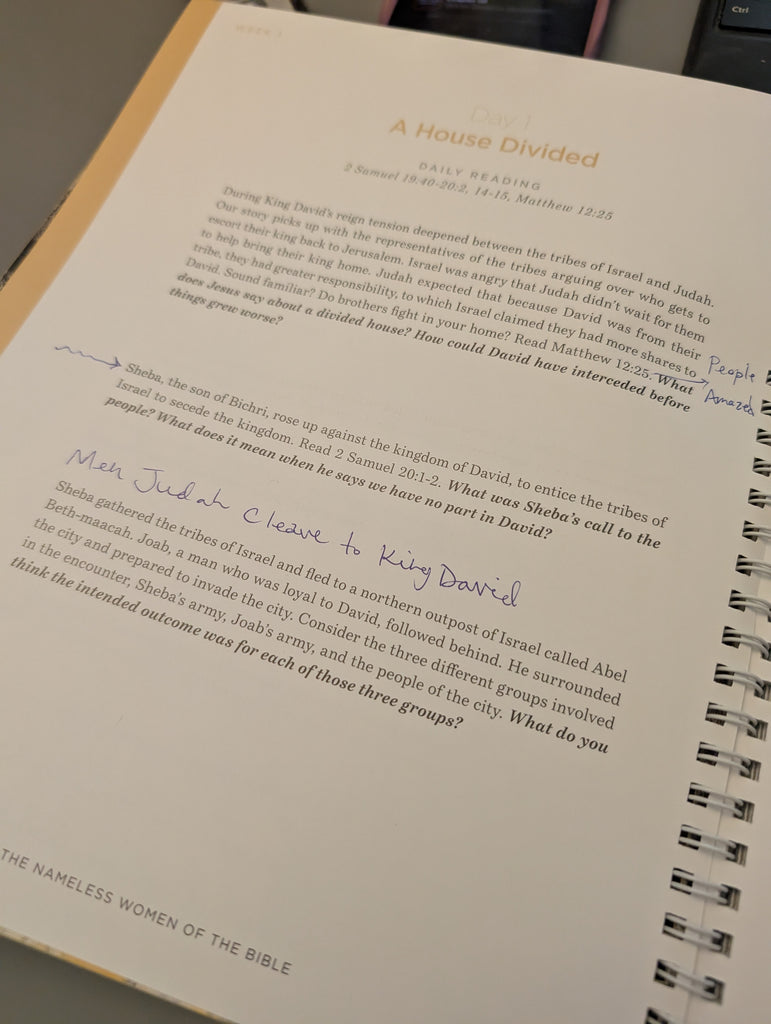 Ctrl
WEEK 1
Day 1
A House Divided
DAILY READING
2 Samuel 19:40-20:2, 14-15, Matthew 12:25
During King David's reign tension deepened between the tribes of Israel and Judah.
Our story picks up with the representatives of the tribes arguing over who gets to
escort their king back to Jerusalem. Israel was angry that Judah didn't wait for them
to help bring their king home. Judah expected that because David was from their
tribe, they had greater responsibility, to which Israel claimed they had more shares to
David. Sound familiar? Do brothers fight in your home? Read Matthew 12:25. What
does Jesus say about a divided house? How could David have interceded before
things grew worse?
People
Amazed
Sheba, the son of Bichri, rose up against the kingdom of David, to entice the tribes of
Israel to secede the kingdom. Read 2 Samuel 20:1-2. What was Sheba's call to the
people? What does it mean when he says we have no part in David?
Men Judah Cleave to King David
Sheba gathered the tribes of Israel and fled to a northern outpost of Israel called Abel
Beth-maacah. Joab, a man who was loyal to David, followed behind. He surrounded
the city and prepared to invade the city. Consider the three different groups involved
in the encounter, Sheba's army, Joab's army, and the people of the city. What do you
think the intended outcome was for each of those three groups?
THE NAMELESS WOMEN OF THE BIBLE